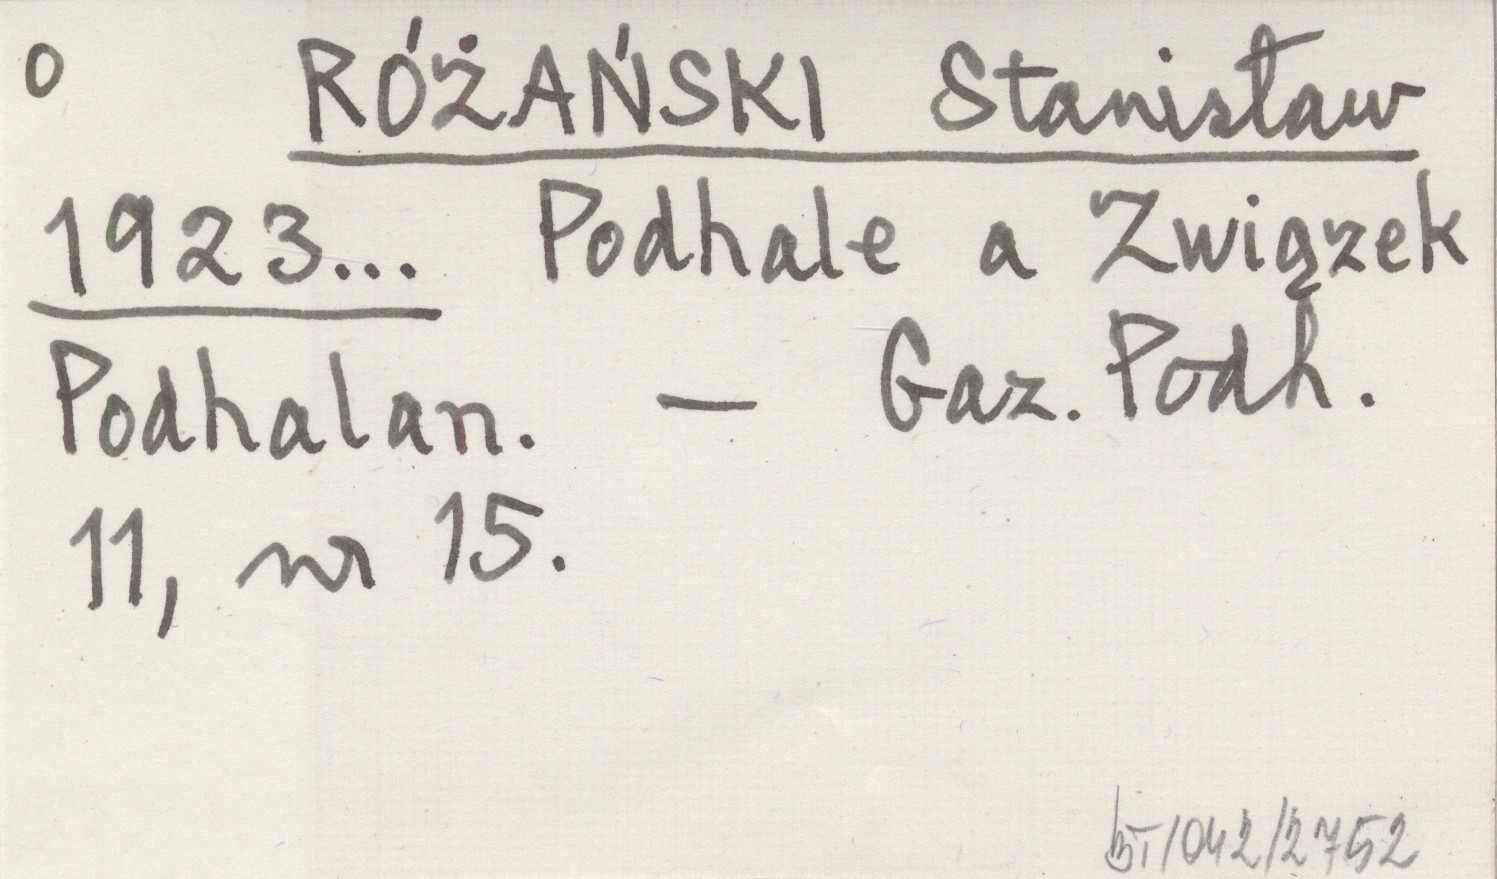 o RÓŻAŃSKI Stanisław
1923... Podhale a Związek
Podhalan. — Gaz. Podh.
11, nr 15.
BT/042/2752